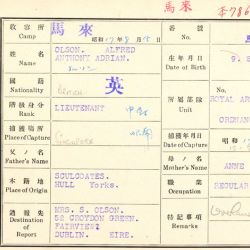 馬來
手786
收容所 馬來 番號
Camp 昭和17年8月15日 No.
姓名 OLSON. ALFRED 生年月日
Name ANTHONY ADRIAN. Date of Birth 9.
國籍 英 所屬部隊 ROYAL AR
Nationality British Unit ORDNAN
階級身分 LIEUTENANT 中尉
Rank
捕獲場所 捕獲年月日
Place of Capture Singapore Date of Capture
父ノ名 母ノ名 ANNE
Father's Name Mother's Name
本籍地 SCULCOATES. 職業 REGULAR
Place of Origin HULL Yorks. Occupation
通報先 MRS. S. OLSON. 特記事項
Destination of Report 58 CROYDON GREEN. Remarks
FAIRVIEW
DUBLIN. EIRE.